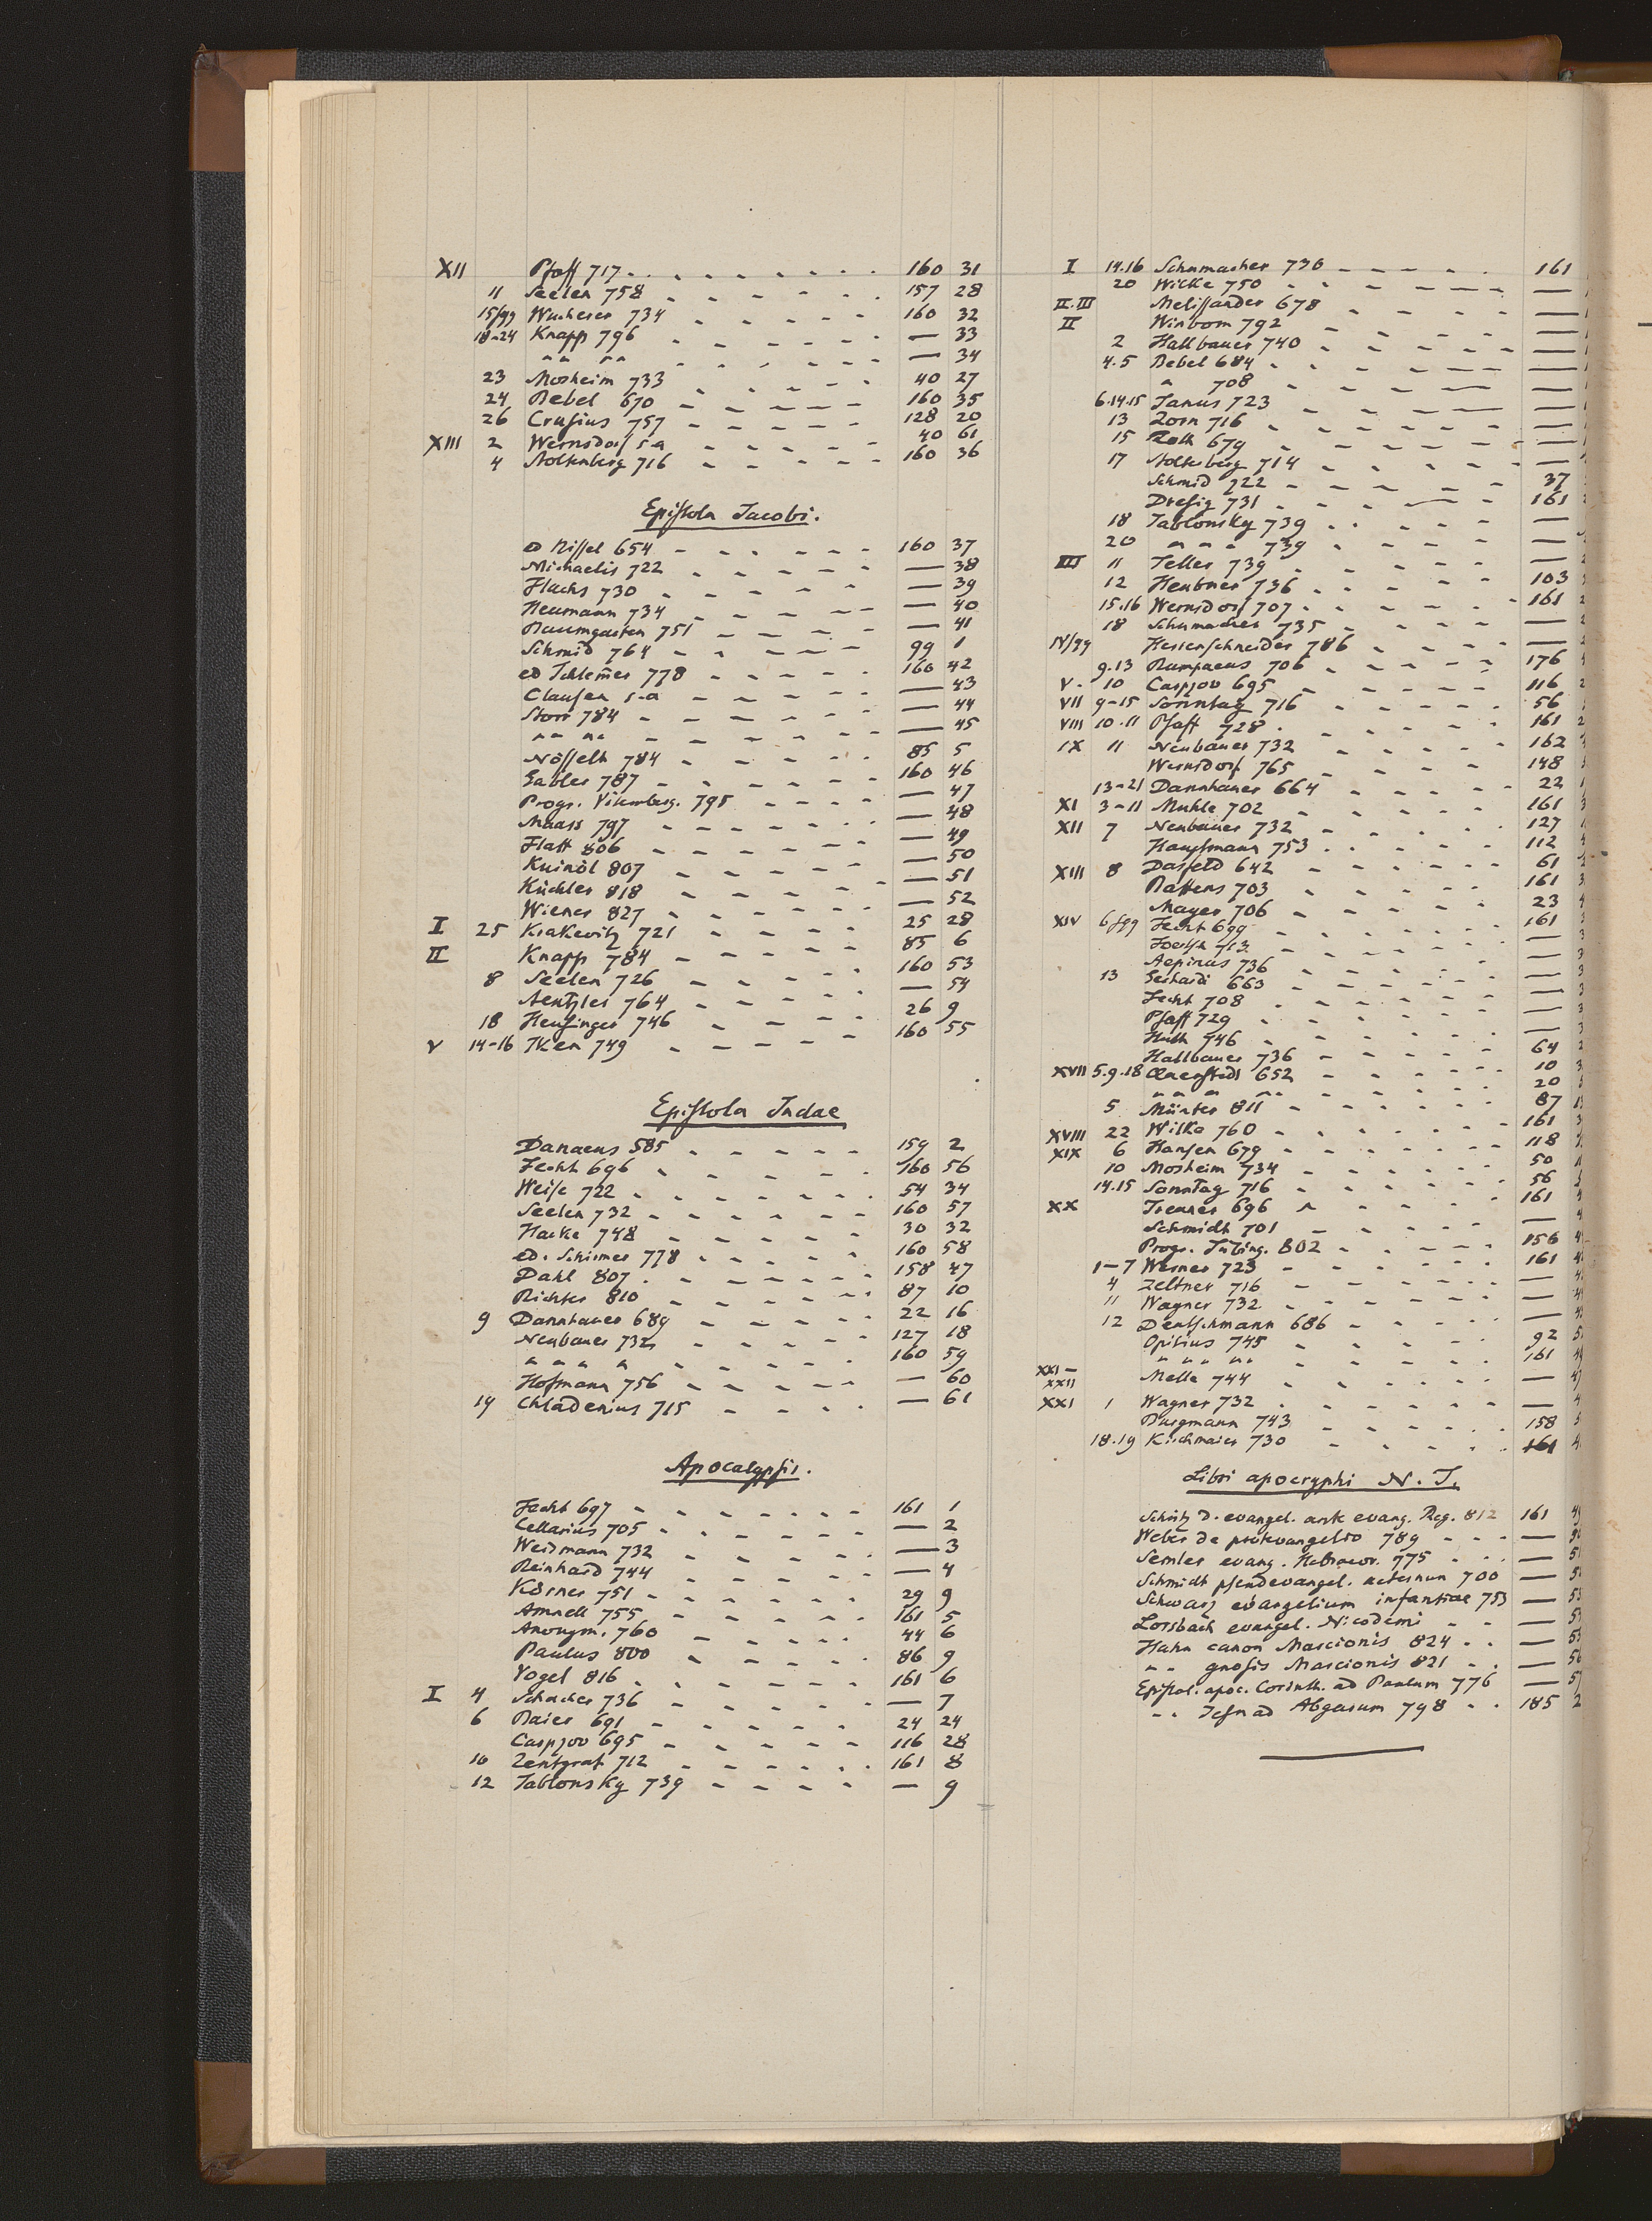 XII Pfaff 717 - - - - - - - 160 31
11 Seelen 758 - - - - - - 157 28
15/99 Wucherer 734 - - - - - 160 32
18-24 Knapp 796 - - - - - - — 33
" " " " - - - - - - — 34
23 Mosheim 733 - - - - - 40 27
24 Bebel 670 - - - - - 160 35
26 Crusius 757 - - - - - 128 20
XIII 2 Wernsdorf s.a - - - - - 40 61
4 Noltenberg 716 - - - - - 160 36
Epistola Jacobi.
ed Nissel 654 - - - - - - 160 37
Michaelis 722 - - - - - — 38
Flachs 730 - - - - - - — 39
Heumann 734 - - - - - — 40
Baumgarten 751 - - - - - — 41
Schmid 764 - - - - - 99 1
ed Schlem̄er 778 - - - - - 160 42
Clausen s.a - - - - - — 43
Storr 784 - - - - - - — 44
" " " " - - - - - - — 45
Nösselt 784 - - - - - 85 5
Gabler 787 - - - - - - 160 46
Progr. Vitemberg. 795 - - - - — 47
Maass 797 - - - - - - — 48
Flatt 806 - - - - - - — 49
Kuinöl 807 - - - - - - — 50
Küchler 818 - - - - - — 51
Wiener 827 - - - - - - — 52
I 25 Krakevitz 721 - - - - - 25 28
II Knapp 784 - - - - - 85 6
8 Seelen 726 - - - - - 160 53
Aentzler 764 - - - - - — 54
18 Heusinger 746 - - - - 26 9
V 14-16 Iken 749 - - - - - 160 55
Epistola Judae
Danaeus 585 - - - - - 159 2
Fecht 696 - - - - - - 160 56
Weise 722 - - - - - - 54 34
Seelen 732 - - - - - - 160 57
Hacke 748 - - - - - 30 32
ed. Schirmer 778 - - - - - 160 58
Dahl 807 - - - - - - 158 47
Richter 810 - - - - - - 87 10
9 Dannhauer 689 - - - - - 22 16
Neubauer 732 - - - - - 127 18
" " " " - - - - - 160 59
Hofmann 756 - - - - - — 60
19 Chladenius 715 - - - - — 61
Apocalypsis.
Fecht 697 - - - - - - 161 1
Cellarius 705 - - - - - - — 2
Weidmann 732 - - - - - — 3
Reinhard 744 - - - - - — 4
Körner 751 - - - - - - 29 9
Amnell 755 - - - - - - 161 5
Anonym. 760 - - - - - 44 6
Paulus 800 - - - - - 86 9
Vogel 816 - - - - - - 161 6
I 4 Schacher 736 - - - - - — 7
6 Baier 691 - - - - - - 24 24
Carpzov 695 - - - - - 116 28
10 Zentgraf 712 - - - - - 161 8
12 Jablonsky 739 - - - - — 9
I 14.16 Schumacher 730 - - - - - 161
20 Wilke 750 - - - - - —
II.III Melissander 678 - - - - —
II Winbom 792 - - - - - —
2 Hallbauer 740 - - - - - —
4.5 Bebel 684 - - - - - —
" 708 - - - - - —
6.14.15 Janus 723 - - - - —
13 Zorn 716 - - - - - - —
15 Roth 679 - - - - - - —
17 Noltenberg 714 - - - - - —
Schmid 722 - - - - - 37
Dresig 731 - - - - - 161
18 Jablonsky 739 - - - - - —
20 " " " 739 - - - - —
III 11 Teller 739 - - - - - —
12 Heubner 736 - - - - - 103
15.16 Wernsdorf 707 - - - - - 161
18 Schumacher 735 - - - - —
IV/99 Kerrenschneider 786 - - - - —
9.13 Rumpaeus 706 - - - - - 176
V. 10 Carpzov 695 - - - - - 116
VII 9-15 Sonntag 716 - - - - - 56
VIII 10.11 Pfaff 728 - - - - - 161
IX 11 Neubauer 732 - - - - - 162
Wernsdorf 765 - - - - - 148
13-21 Dannhauer 664 - - - - - 22
XI 3-11 Muhle 702 - - - - - 161
XII 7 Neubauer 732 - - - - - 127
Hauptmann 753 - - - - - 112
XIII 8 Dasfeld 642 - - - - - 61
Battens 703 - - - - - 161
Mayer 706 - - - - - 23
XIV 6 sqq Fecht 699 - - - - - - 161
713 - - - - - —
Aepinus 736 - - - - - —
13 Gerhardi 663 - - - - - —
Fecht 708 - - - - - - —
Pfaff 729 - - - - - —
Huth 746 - - - - - —
Hallbauer 736 - - - - - 64
XVII 5.9.18 Quenstedt 652 - - - - - 10
" " " " - - - - - 20
5 Münter 811 - - - - - 87
XVIII 22 Wilke 760 - - - - - - 161
XIX 6 Hansen 679 - - - - - 118
10 Mosheim 734 - - - - - 50
14.15 Sonntag 716 - - - - - 56
XX Treuner 696 - - - - - 161
Schmidt 701 - - - - - —
Progr. Tubing. 802 - - - - 156
1-7 Werner 723 - - - - - 161
4 Zeltner 716 - - - - - —
11 Wagner 732 - - - - - —
12 Deutschmann 686 - - - - —
Opitius 745 - - - - - 92
" " " " - - - - - 161
XXI-XXII Melle 744 - - - - - —
XXI 1 Wagner 732 - - - - - —
Burgmann 743 - - - - - 158
18.19 Kirchmaier 730 - - - - - 161
Libri apocryphi N. T.
Schütz D. evangel. ante evang. Reg. 812 161 49
Weber de protevangelio 789 - - - —
Semler evang. Hebraeor. 775 - - - —
Schmidt pseudevangel. aeternum 700 —
Schwarz evangelium infantiae 753 —
Lorsbach evangel. Nicodemi - - —
Hahn canon Marcionis 824 - - —
" " gnosis Marcionis 821 - - —
Epistol. apoc. Corinth. ad Paulum 776 —
" " Jesu ad Abgarum 798 - - 185 2